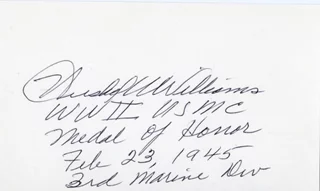 Hershel W Williams
WW II USMC
Medal of Honor
Feb 23, 1945
3rd Marine Div